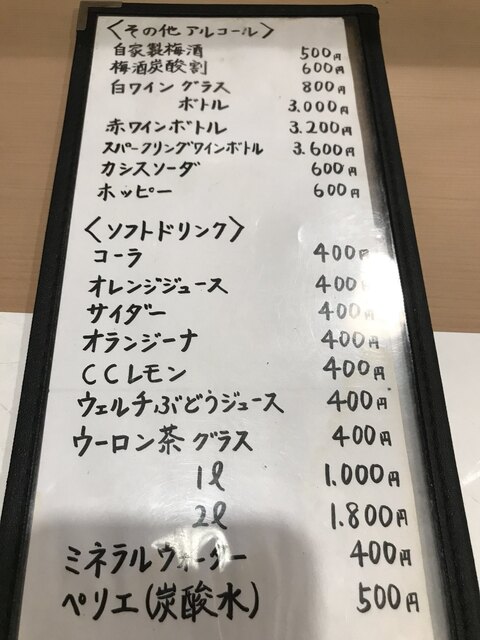 〈その他 アルコール〉
自家製梅酒 500円
梅酒炭酸割 600円
白ワイン グラス 800円
ボトル 3.000円
赤ワインボトル 3.200円
スパークリングワインボトル 3.600円
カシスソーダ 600円
ホッピー 600円
〈ソフトドリンク〉
コーラ 400円
オレンジジュース 400円
サイダー 400円
オランジーナ 400円
CCレモン 400円
ウェルチぶどうジュース 400円
ウーロン茶 グラス 400円
1ℓ 1.000円
2ℓ 1.800円
ミネラルウォーター 400円
ペリエ(炭酸水) 500円